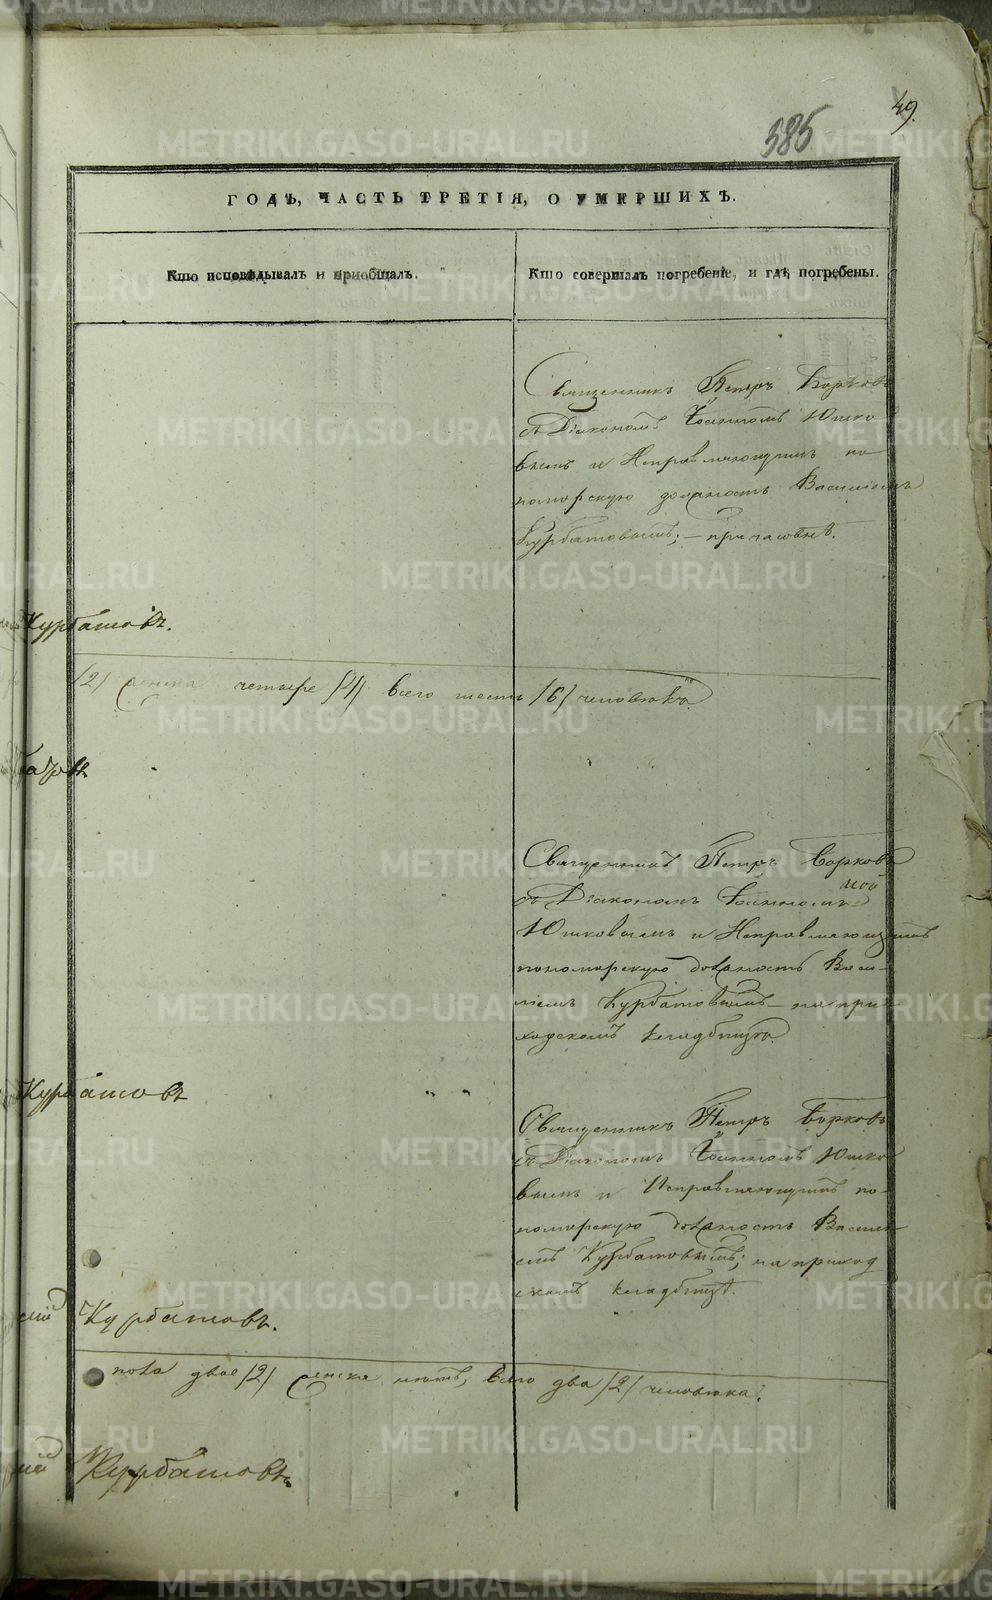 49.
385
ГОДЪ, ЧАСТЬ ТРЕТІЯ, О УМЕРШИХЪ.
Кто исповѣдывалъ и пріобщалъ.
Кто совершалъ погребеніе, и гдѣ погребены.
Священникъ Петръ Борковъ
съ Діакономъ Іоанномъ Юшко
вымъ и Исправляющимъ по
номарскую должность Василіемъ
Курбатовымъ; – при часовнѣ.
Курбатовъ.
/2/ женска четыре /4/ всего шесть /6/ человѣкъ.
Священникъ Петръ Борковъ
съ Діакономъ Іоанномъ
Юшковымъ и Исправляющимъ
пономарскую должность Васи-
ліемъ Курбатовымъ – на при
ходскомъ кладбищѣ.
Курбатовъ
Священникъ Петръ Борковъ
съ Діакономъ Іоанномъ Юшко
вымъ и Исправляющимъ по-
номарскую должность Васили
емъ Курбатовымъ; на приход
скомъ кладбищѣ.
Курбатовъ.
пола двое /2/ женска нѣтъ, всего два /2/ человѣка.
Курбатовъ.
METRIKI.GASO-URAL.RU